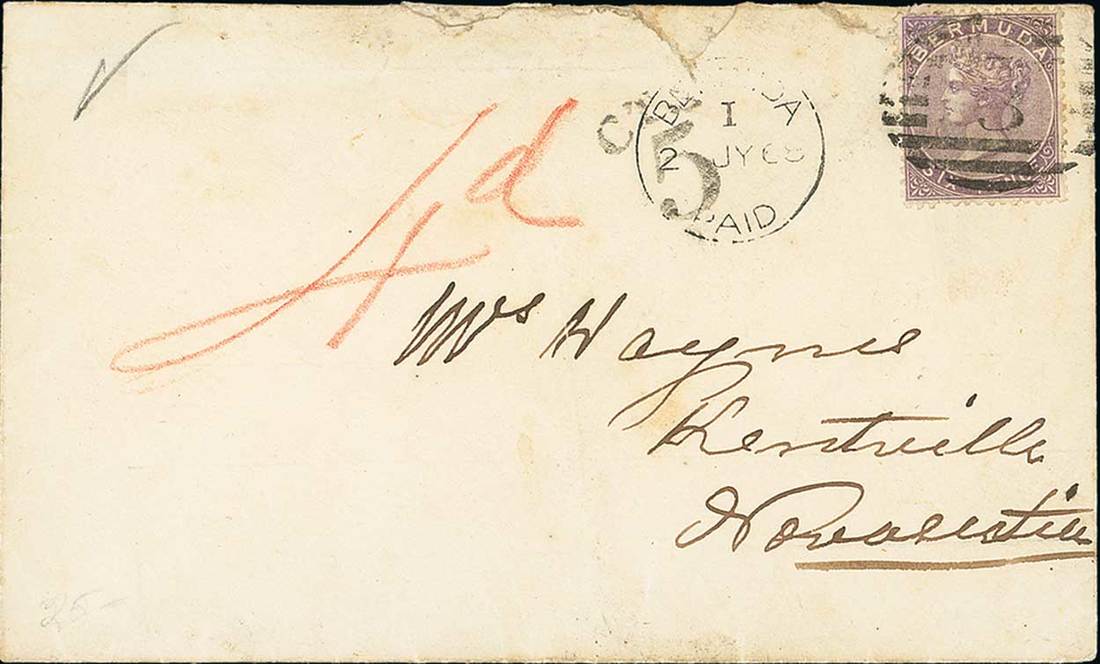 BERMUDA
SIX PENCE
BERMUDA
I
2 JY 68
PAID
5
4d
Mrs Haynes
Kentville
Novascotia
25-